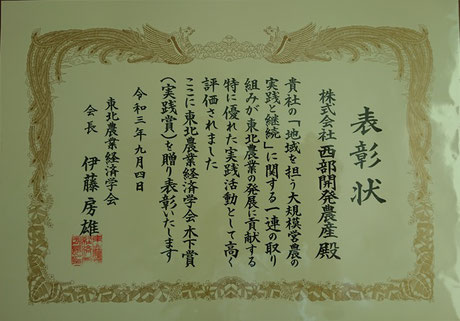 表彰状
株式会社 西部開発農産 殿
貴社の「地域を担う大規模営農の
実践と継続」に関する一連の取り
組みが東北農業の発展に貢献する
特に優れた実践活動として高く
評価されました
ここに東北農業経済学会木下賞
(実践賞)を贈り表彰いたします
令和三年九月四日
東北農業経済学会
会長 伊藤房雄